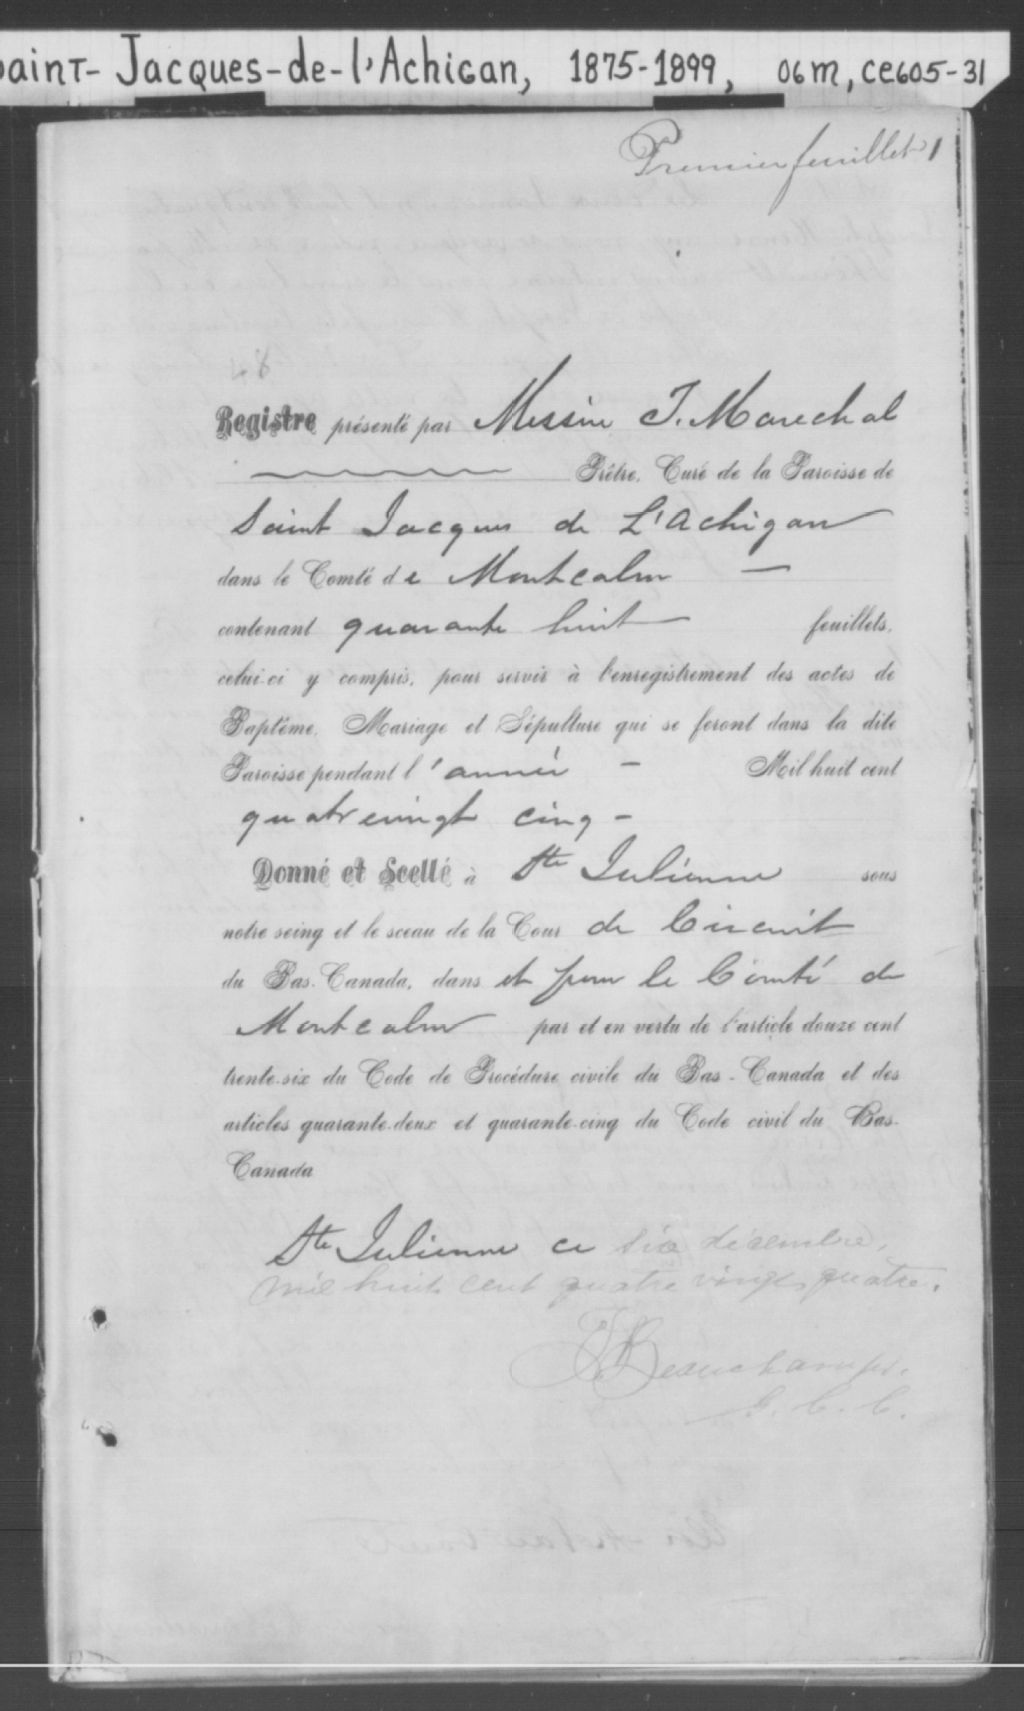 aint-Jacques-de-l'Achigan, 1875-1899, 06m, ce605-31
Premier feuillet 1
48
Registre présenté par Messire J. Marechal
Prêtre, Curé de la Paroisse de
Saint Jacques de L'Achigan
dans le Comté de Montcalm —
contenant quarante huit feuillets,
celui-ci y compris, pour servir à l'enregistrement des actes de
Baptême, Mariage et Sépulture qui se feront dans la dite
Paroisse pendant l'année - Mil huit cent
quatrevingt cinq -
Donné et Scellé à Ste Julienne sous
notre seing et le sceau de la Cour de Circuit
du Bas-Canada, dans et pour le Comté de
Montcalm par et en vertu de l'article douze cent
trente-six du Code de Procédure civile du Bas-Canada et des
articles quarante-deux et quarante-cinq du Code civil du Bas-
Canada
Ste Julienne ce six décembre,
mil huit cent quatre vingt quatre.
Beauchamps.
G. C. C.